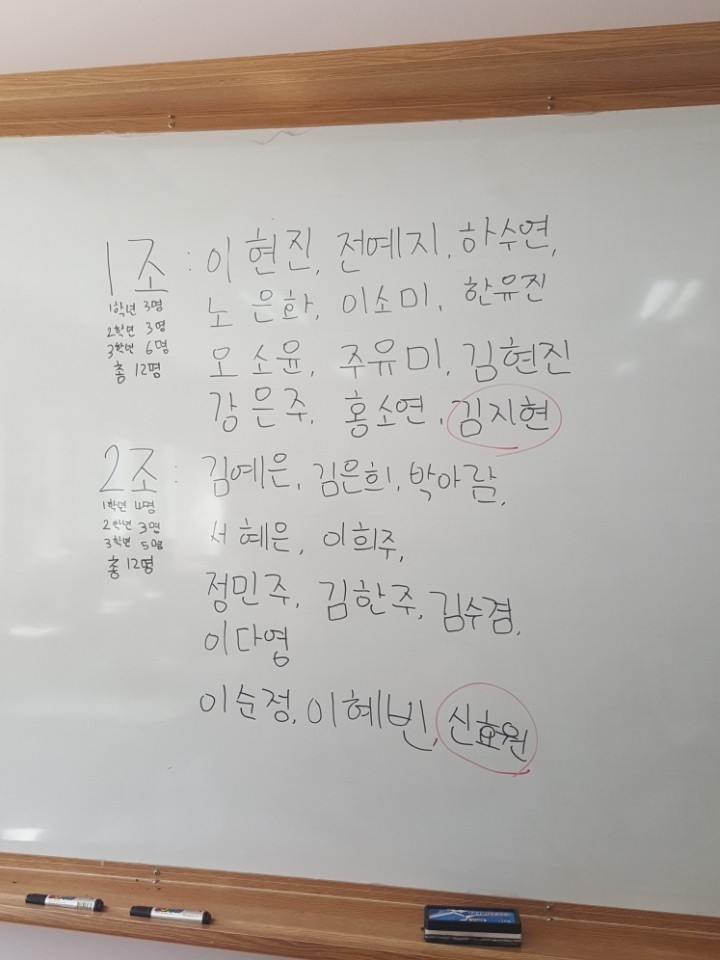 1조 : 이현진, 전예지, 하수연,
1학년 3명
노은화, 이소미, 한유진
2학년 3명
3학년 6명
오소윤, 주유미, 김현진
총 12명
강은주, 홍소연, 김지현
2조 : 김예은, 김은희, 박아람,
1학년 4명
2학년 3명
서혜은, 이희주,
3학년 5명
총 12명
정민주, 김한주, 김수겸,
이다영
이순정, 이혜빈, 신효원